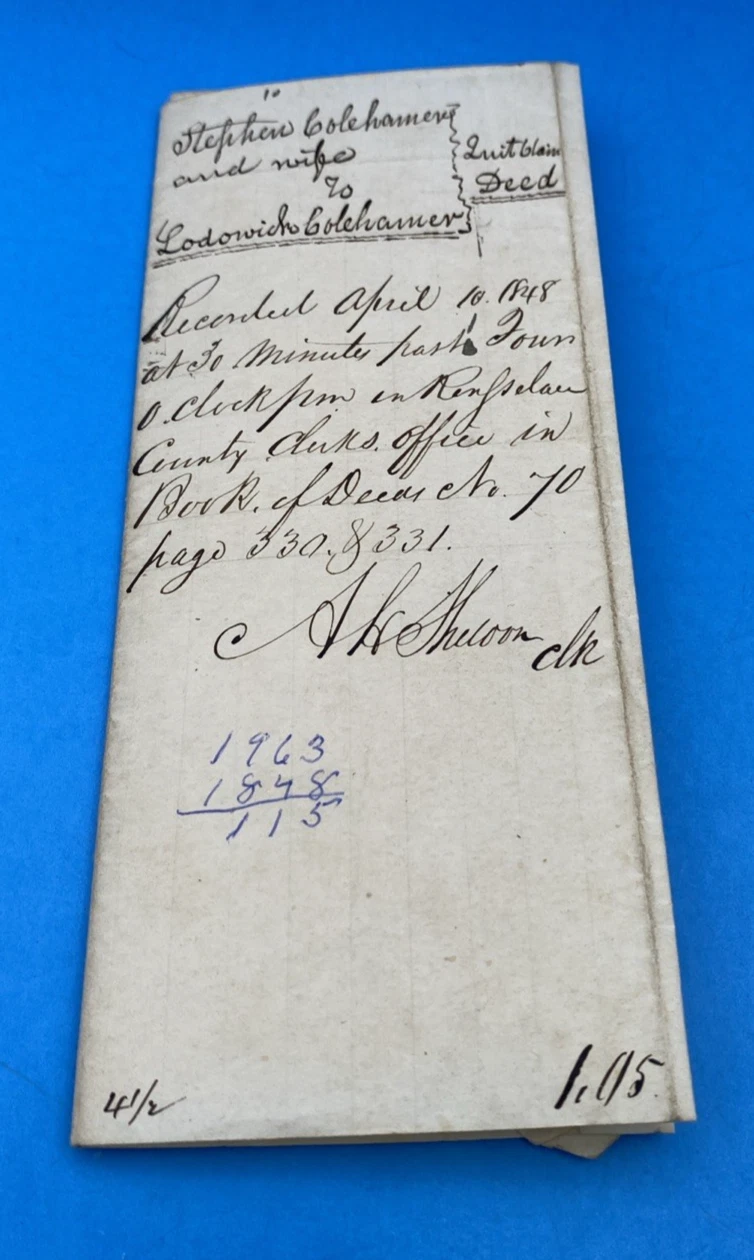 10
Stephen Colehamer
and wife
To
Lodowick Colehamer
Quit Claim
Deed
Recorded April 10. 1848
at 30 Minutes past Four
o.clock pm in Rensselaer
County Clerks. office in
Book. of Deeds No. 70
page 330. & 331.
A H Sheldon clk
1963
1848
115
4 1/2
1.05